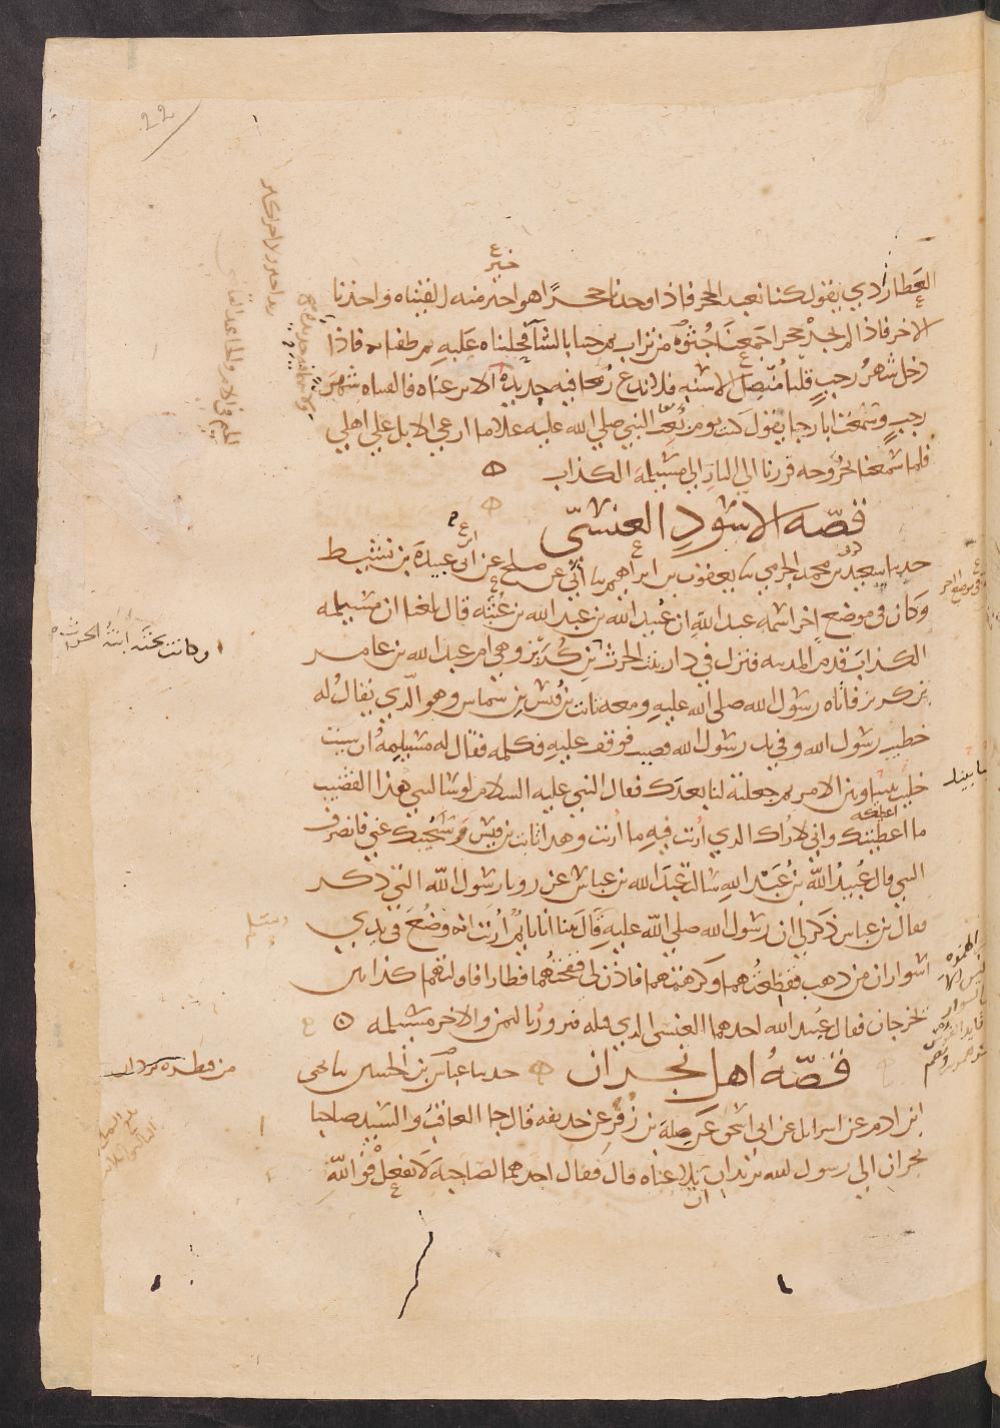 22
خير
العطاردي يقول كنا نعبد الحجر فاذا وجدنا حجرا هو احد منه القيناه واخذنا
الاخر فاذا لم نجد حجرا جمعنا جثوة من تراب ثم جينا بالشاة فحلبناه عليه ثم طفنا به فاذا
دخل شهر رجب قلنا منصل الاسنه فلا ندع رمحا فيه حديدة الا نزعناه فالقيناه شهر
رجب وسمعت ابا رجا يقول كنت يوم بعث النبي صلى الله عليه غلاما ارعى الابل على اهلي
فلما سمعنا بخروجه فررنا الى النار الى مسيلمة الكذاب
قصة الاسود العنسي
حدثنا سعيد بن محمد الجرمي نا يعقوب بن ابراهيم نا ابي عن صلح عن ابن عبيدة بن نشيط
وكان في موضع اخر اسمه عبد الله ان عبيد الله بن عبد الله بن عتبة قال بلغنا ان مسيلمه
الكذاب قدم المدينه فنزل في دار بنت الحرث بن كريز وهي ام عبد الله بن عامر
بن كريز فاتاه رسول الله صلى الله عليه ومعه ثابت بن قيس بن شماس وهو الذي يقال له
خطيب رسول الله وفي يد رسول الله قضيب فوقف عليه فكلمه فقال له مسيلمة ان شيت
خليت بيننا وبين الامر ثم جعلته لنا بعدك فقال النبي عليه السلام لو سالتني هذا القضيب
ما اعطيتكه واني لاراك الذي اريت فيه ما اريت وهذا ثابت بن قيس وسيجيبك عني فانصرف
النبي قال عبيد الله بن عبد الله سالت عبد الله بن عباس عن رويا رسول الله التي ذكر
فقال بن عباس ذكر لي ان رسول الله صلى الله عليه قال بينا انا نايم اريت انه وضع في يدي
اسواران من ذهب ففظعتهما وكرهتهما فاذن لي فنفختهما فطارا فاولتهما كذابين
يخرجان فقال عبيد الله احدهما العنسي الذي قتله فيروز باليمن والاخر مسيلمه
قصة اهل نجران حدثنا عباس بن الحسين نا يحيى
ابن ادم عن اسرايل عن ابي اسحق عن صلة بن زفر عن حذيفه قال جا العاقب والسيد صاحبا
نجران الى رسول الله يريدان ان يلاعناه قال فقال احدهما لصاحبه لا تفعل فوالله
وكانت تحته ابنة الحرث